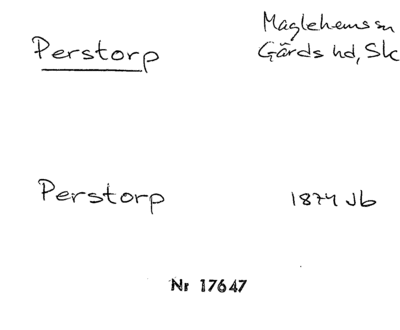 Maglehems sn
Perstorp Gärds hd, Sk
Perstorp 1874 Jb
Nr 17647